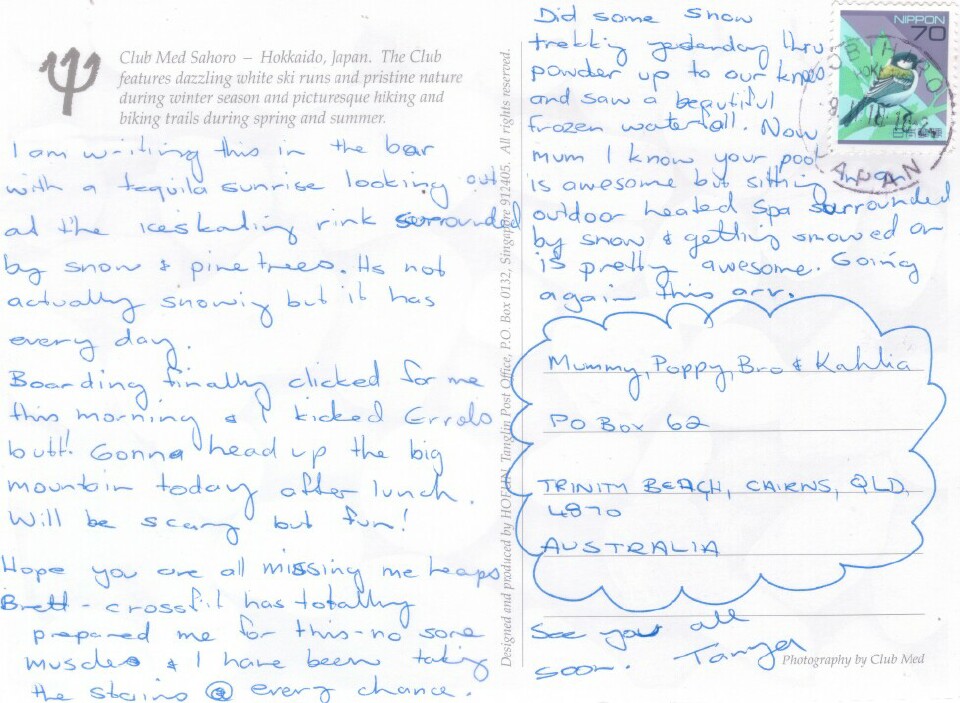 Club Med Sahoro – Hokkaido, Japan. The Club
features dazzling white ski runs and pristine nature
during winter season and picturesque hiking and
biking trails during spring and summer.
I am writing this in the bar
with a tequila sunrise looking out
at the iceskating rink surrounded
by snow & pine trees. Its not
actually snowing but it has
every day.
Boarding finally clicked for me
this morning & I kicked Errols
butt! Gonna head up the big
mountain today after lunch.
Will be scary but fun!
Hope you are all missing me heaps
Brett - crossfit has totally
prepared me for this - no sore
muscles & I have been taking
the stairs @ every chance.
Designed and produced by HOFLIN, Tanglin Post Office, P.O. Box 0132, Singapore 912405. All rights reserved.
Did some snow
trekking yesterday thru
powder up to our knees
and saw a beautiful
frozen waterfall. Now
mum I know your pool
is awesome but sitting in an
outdoor heated spa surrounded
by snow & getting snowed on
is pretty awesome. Going
again this arv.
NIPPON
70
OBIHIRO
18
JAPAN
日本郵便
Mummy, Poppy, Bro & Kahlia
PO Box 62
TRINITY BEACH, CAIRNS, QLD,
4870
AUSTRALIA
See you all
soon. Tanya
Photography by Club Med